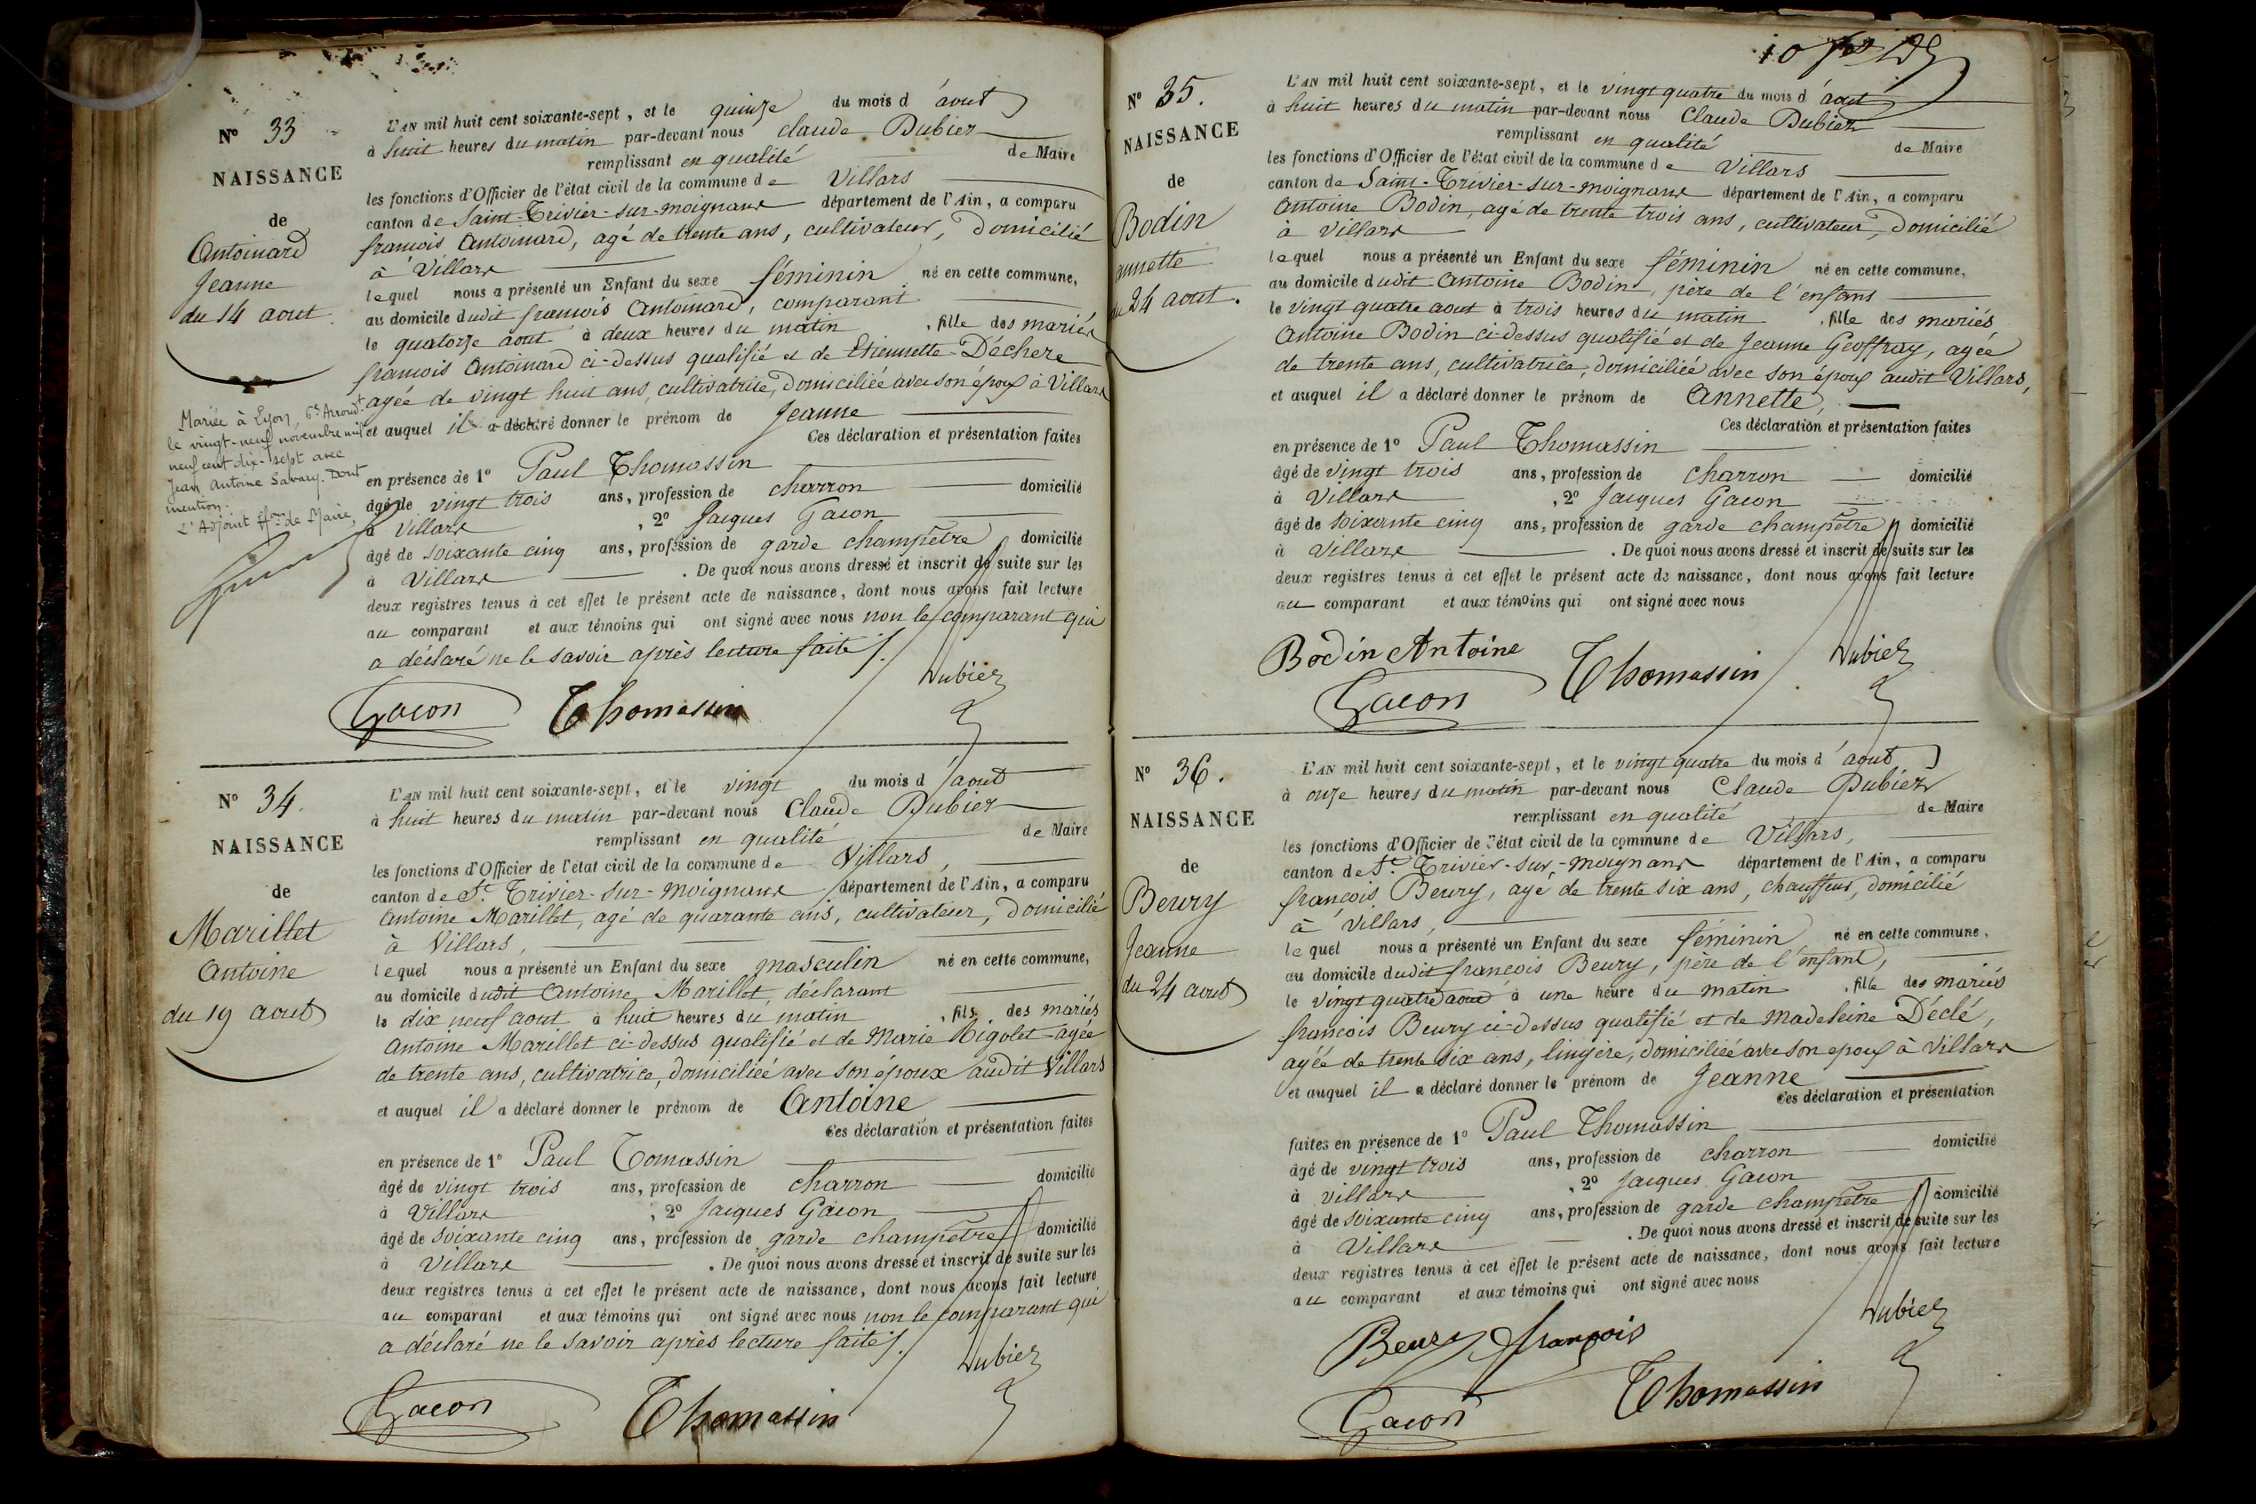 N° 33
NAISSANCE
de
Antoinard
Jeanne
du 14 aout
Mariée à Lyon, 6e Arrondt
le vingt-neuf novembre mil
neuf cent dix-sept avec
Jean Antoine Savary. Dont
mention.
L'Adjoint ffon de Maire,
L'AN mil huit cent soixante-sept, et le quinze du mois d'aout
à huit heures du matin par-devant nous Claude Dubiez
remplissant en qualité de Maire
les fonctions d'Officier de l'état civil de la commune de Villars
canton de Saint-Trivier-sur-moignans département de l'Ain, a comparu
françois Antoinard, agé de trente ans, cultivateur, Domicilié
à Villars
lequel nous a présenté un Enfant du sexe féminin né en cette commune,
au domicile dudit françois Antoinard, comparant
le quatorze aout à deux heures du matin, fille des mariés
françois Antoinard ci-dessus qualifié et de Etiennette Déchere
agée de vingt huit ans, cultivatrice, domiciliée avec son époux à Villars
et auquel il a déclaré donner le prénom de Jeanne
Ces déclaration et présentation faites
en présence de 1° Paul Thomassin
âgé de vingt trois ans, profession de charron domicilié
à Villars, 2° Jacques Gacon
âgé de soixante cinq ans, profession de garde champêtre domicilié
à Villars. De quoi nous avons dressé et inscrit de suite sur les
deux registres tenus à cet effet le présent acte de naissance, dont nous avons fait lecture
au comparant et aux témoins qui ont signé avec nous non le comparant qui
a déclaré ne le savoir après lecture faite /.
Dubiez
Gacon Thomassin
N° 34.
NAISSANCE
de
Marillet
Antoine
du 19 aout
L'AN mil huit cent soixante-sept, et le vingt du mois d'aout
à huit heures du matin par-devant nous Claude Dubiez
remplissant en qualité de Maire
les fonctions d'Officier de l'état civil de la commune de Villars,
canton de St Trivier-sur-moignans département de l'Ain, a comparu
Antoine Marillet, agé de quarante ans, cultivateur, Domicilié
à Villars,
lequel nous a présenté un Enfant du sexe masculin né en cette commune,
au domicile dudit Antoine Marillet, déclarant
le dix neuf aout à huit heures du matin, fils des mariés
Antoine Marillet ci-dessus qualifié et de Marie Rigolet agée
de trente ans, cultivatrice, domiciliée avec son époux audit Villars
et auquel il a déclaré donner le prénom de Antoine
Ces déclaration et présentation faites
en présence de 1° Paul Tomassin
âgé de vingt trois ans, profession de charron domicilié
à Villars, 2° Jacques Gacon
âgé de soixante cinq ans, profession de garde champêtre domicilié
à Villars. De quoi nous avons dressé et inscrit de suite sur les
deux registres tenus à cet effet le présent acte de naissance, dont nous avons fait lecture
au comparant et aux témoins qui ont signé avec nous non le comparant qui
a déclaré ne le savoir après lecture faite /.
Dubiez
Gacon Thomassin
N° 35.
NAISSANCE
de
Bodin
annette
du 24 aout.
L'AN mil huit cent soixante-sept, et le vingt quatre du mois d'aout
à huit heures du matin par-devant nous Claude Dubiez
remplissant en qualité de Maire
les fonctions d'Officier de l'état civil de la commune de Villars
canton de Saint-Trivier-sur-moignans département de l'Ain, a comparu
Antoine Bodin, agé de trente trois ans, cultivateur, Domicilié
à Villars
lequel nous a présenté un Enfant du sexe féminin né en cette commune,
au domicile dudit Antoine Bodin, père de l'enfant
le vingt quatre aout à trois heures du matin, fille des mariés
Antoine Bodin ci-dessus qualifié et de Jeanne Geoffray, agée
de trente ans, cultivatrice, domiciliée avec son époux audit Villars,
et auquel il a déclaré donner le prénom de Annette,
Ces déclaration et présentation faites
en présence de 1° Paul Thomassin
âgé de vingt trois ans, profession de charron domicilié
à Villars, 2° Jacques Gacon
âgé de soixante cinq ans, profession de garde champêtre domicilié
à Villars. De quoi nous avons dressé et inscrit de suite sur les
deux registres tenus à cet effet le présent acte de naissance, dont nous avons fait lecture
au comparant et aux témoins qui ont signé avec nous
Bodin Antoine Thomassin Dubiez
Gacon
N° 36.
NAISSANCE
de
Beury
Jeanne
du 24 aout
L'AN mil huit cent soixante-sept, et le vingt quatre du mois d'aout
à onze heures du matin par-devant nous Claude Dubiez
remplissant en qualité de Maire
les fonctions d'Officier de l'état civil de la commune de Villars,
canton de St Trivier-sur-moignans département de l'Ain, a comparu
françois Beury, agé de trente six ans, chauffeur, domicilié
à Villars,
lequel nous a présenté un Enfant du sexe féminin né en cette commune,
au domicile dudit françois Beury, père de l'enfant,
le vingt quatre aout à une heure du matin, fille des mariés
françois Beury ci-dessus qualifié et de Madeleine Déclé,
agée de trente six ans, lingère, domiciliée avec son epoux à Villars
et auquel il a déclaré donner le prénom de Jeanne
Ces déclaration et présentation
faites en présence de 1° Paul Thomassin
âgé de vingt trois ans, profession de charron domicilié
à Villars, 2° Jacques Gacon
âgé de soixante cinq ans, profession de garde champêtre domicilié
à Villars. De quoi nous avons dressé et inscrit de suite sur les
deux registres tenus à cet effet le présent acte de naissance, dont nous avons fait lecture
au comparant et aux témoins qui ont signé avec nous
Dubiez
Beury françois
Gacon Thomassin